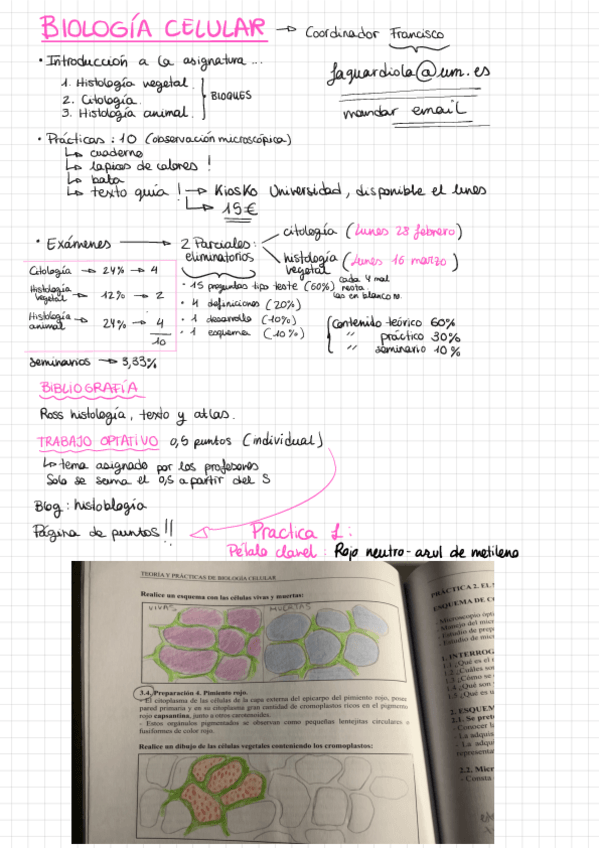 BIOLOGÍA CELULAR → Coordinador Francisco
faguardiola@um.es
mandar email
• Introducción a la asignatura ...
1. Histología vegetal.
2. Citología.
3. Histología animal.
BLOQUES
• Prácticas : 10 (observación microscópica)
↳ cuaderno
↳ lapices de colores !
↳ bata
↳ texto guía ! → Kiosko Universidad, disponible el lunes
↳ 15€
• Exámenes → 2 Parciales: eliminatorios
citología (lunes 28 febrero)
histología vegetal (lunes 16 marzo)
Citología → 24% → 4
Histología vegetal → 12% → 2
Histología animal → 24% → 4
10
seminarios → 3,33%
• 15 preguntas tipo teste (60%) cada 4 mal resta. las en blanco no.
• 4 definiciones (20%)
• 1 desarrollo (10%)
• 1 esquema (10%)
Contenido teórico 60%
" práctico 30%
" seminario 10%
BIBLIOGRAFÍA
Ross histología, texto y atlas.
TRABAJO OPTATIVO 0,5 puntos (individual)
↳ tema asignado por los profesores
Solo se suma el 0,5 a partir del 5
Blog: histoblogía
Página de puntos!!
Practica 1:
Pétalo clavel: Rojo neutro - azul de metileno
TEORÍA Y PRÁCTICAS DE BIOLOGÍA CELULAR
Realice un esquema con las células vivas y muertas:
VIVAS
MUERTAS
3.4. Preparación 4. Pimiento rojo.
- El citoplasma de las células de la capa externa del epicarpo del pimiento rojo, posee
pared primaria y en su citoplasma gran cantidad de cromoplastos ricos en el pigmento
rojo capsantina, junto a otros carotenoides.
- Estos orgánulos pigmentados se observan como pequeñas lentejitas circulares o
fusiformes de color rojo.
Realice un dibujo de las células vegetales conteniendo los cromoplastos:
PRÁCTICA 2. EL
ESQUEMA DE
- Microscopio
- Manejo del
- Estudio de
- Estudio de
1. INTERROG
1.1 ¿Qué es el
1.2 ¿Cuáles
1.3 ¿Cómo se
1.4 ¿Qué son
1.5 ¿Qué es
2. ESQUEM
2.1. Se
- Conocer
- La
- La
2.2.
- Consta